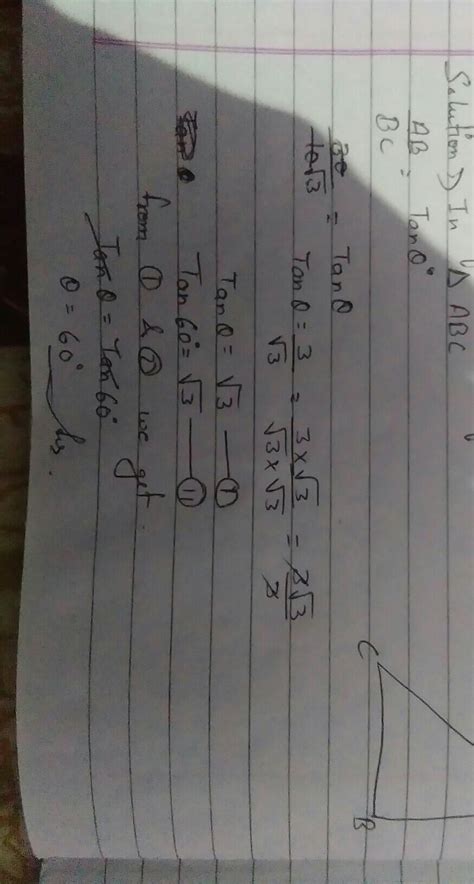 Solution ⇒ In △ ABC
AB/BC = Tanθ°
30/10√3 = Tanθ
Tanθ = 3/√3 = 3×√3/√3×√3 = 3√3/3
Tanθ = √3 — ①
Tan 60° = √3 — ⑪
from ① & ⑪ we get.
Tanθ = Tan60°
θ = 60°
C
B